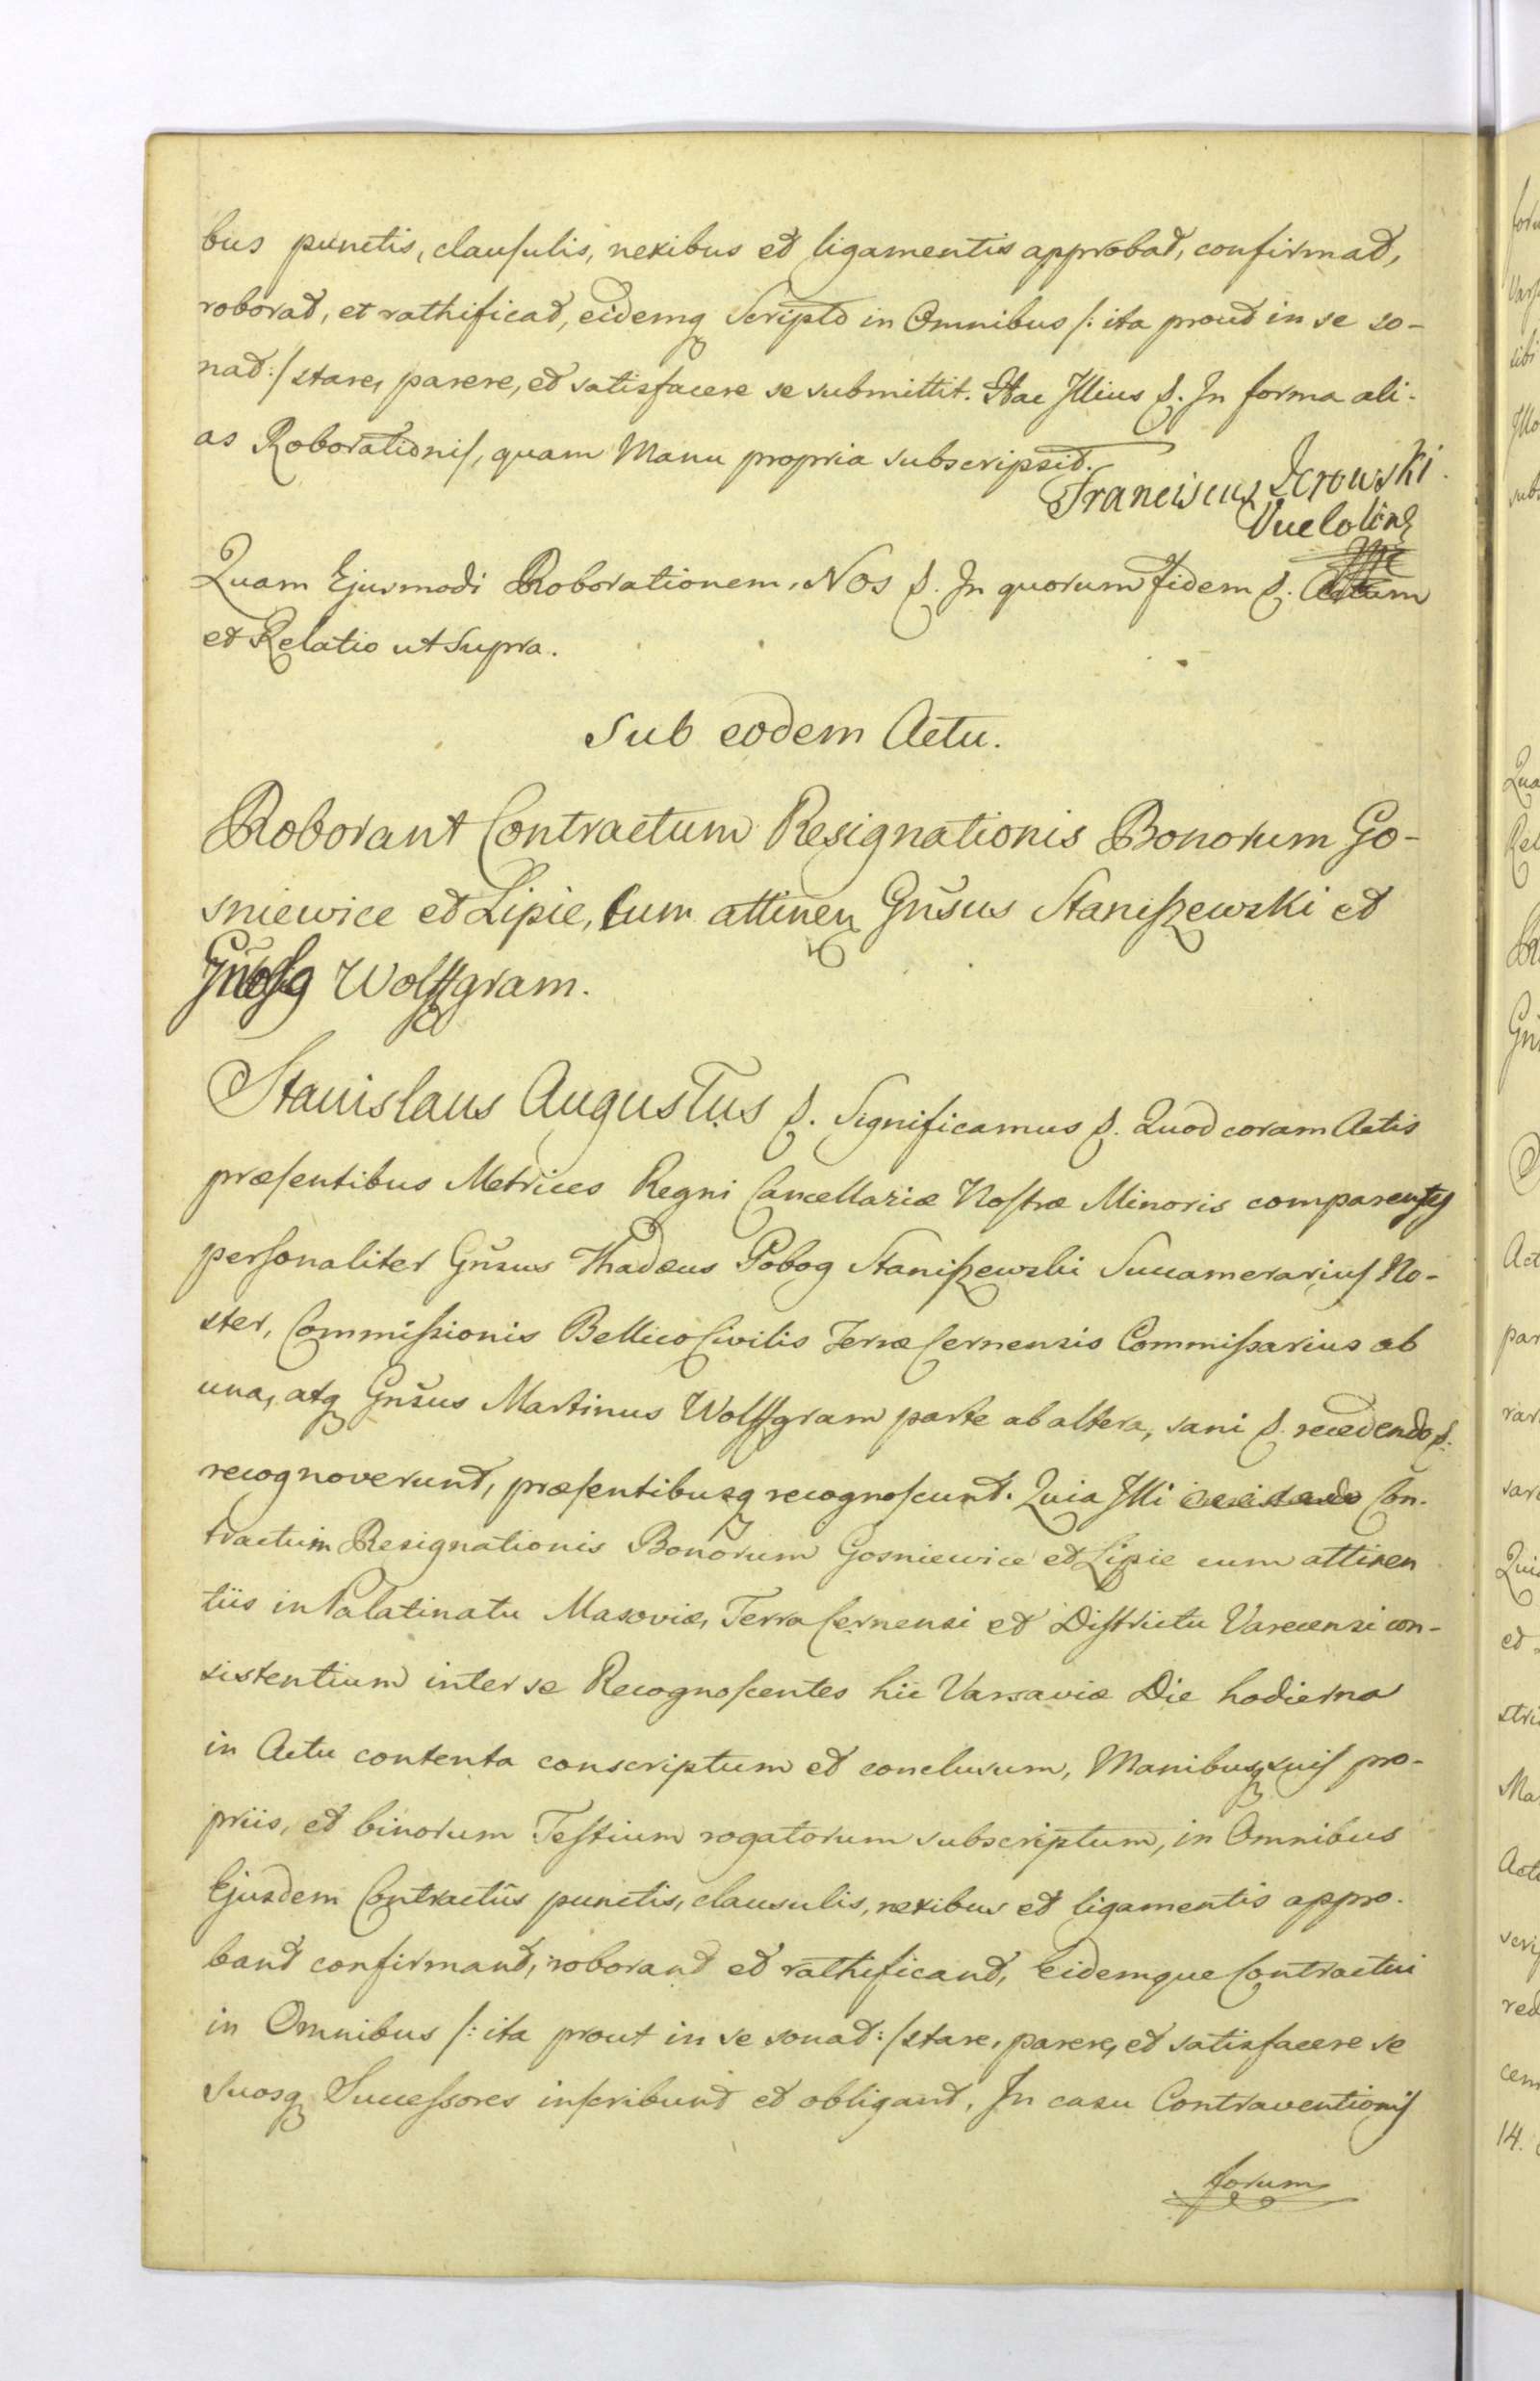 bus punctis, clausulis, nexibus et ligamentis approbat, confirmat,
roborat, et rathificat, eidemq Scripto in Omnibus /: ita prout in se so-
nat :/ stare, parere, et satisfacere se submittit. Hac Illius p. In forma ali-
as Roborationis, quam Manu propria subscripsit.
Franciscus
Quam Ejusmodi Roborationem, Nos p. In quorum fidem p. Actum
et Relatio ut Supra.
Sub eodem Actu.
Roborant Contractum Resignationis Bonorum Go-
sniewice et Lipie, cum attinen Gnsus Staniszewski et
Wolffgram.
Stanislaus Augustus p. Significamus p. Quod coram Actis
præsentibus Metrices Regni Cancellariæ Nostræ Minoris comparentes
personaliter Gnsus Thadæus Pobog Staniszewski Succamerarius No-
ster, Commissionis Bellico Civilis Terræ Cernensis Commissarius ab
una, atq Gnsus Martinus Wolffgram parte ab altera, sani p. recedendo p.
recognoverunt, præsentibusq recognoscunt. Quia Illi Con-
tractum Resignationis Bonorum Gosniewice et Lipie cum attinen
tiis in Palatinatu Masoviæ, Terra Cernensi et Districtu Varecensi con-
sistentium inter se Recognoscentes hic Varsaviæ Die hodierna
in Actu contenta conscriptum et conclusum, Manibusq suis pro-
priis, et binorum Testium rogatorum subscriptum, in Omnibus
Ejusdem Contractûs punctis, clausulis, nexibus et ligamentis appro-
bant confirmant, roborant et rathificant, Eidemque Contractui
in Omnibus /: ita prout in se sonat :/ stare, parere, et satisfacere se
suosq Successores inscribunt et obligant, In casu Contraventionis
forum